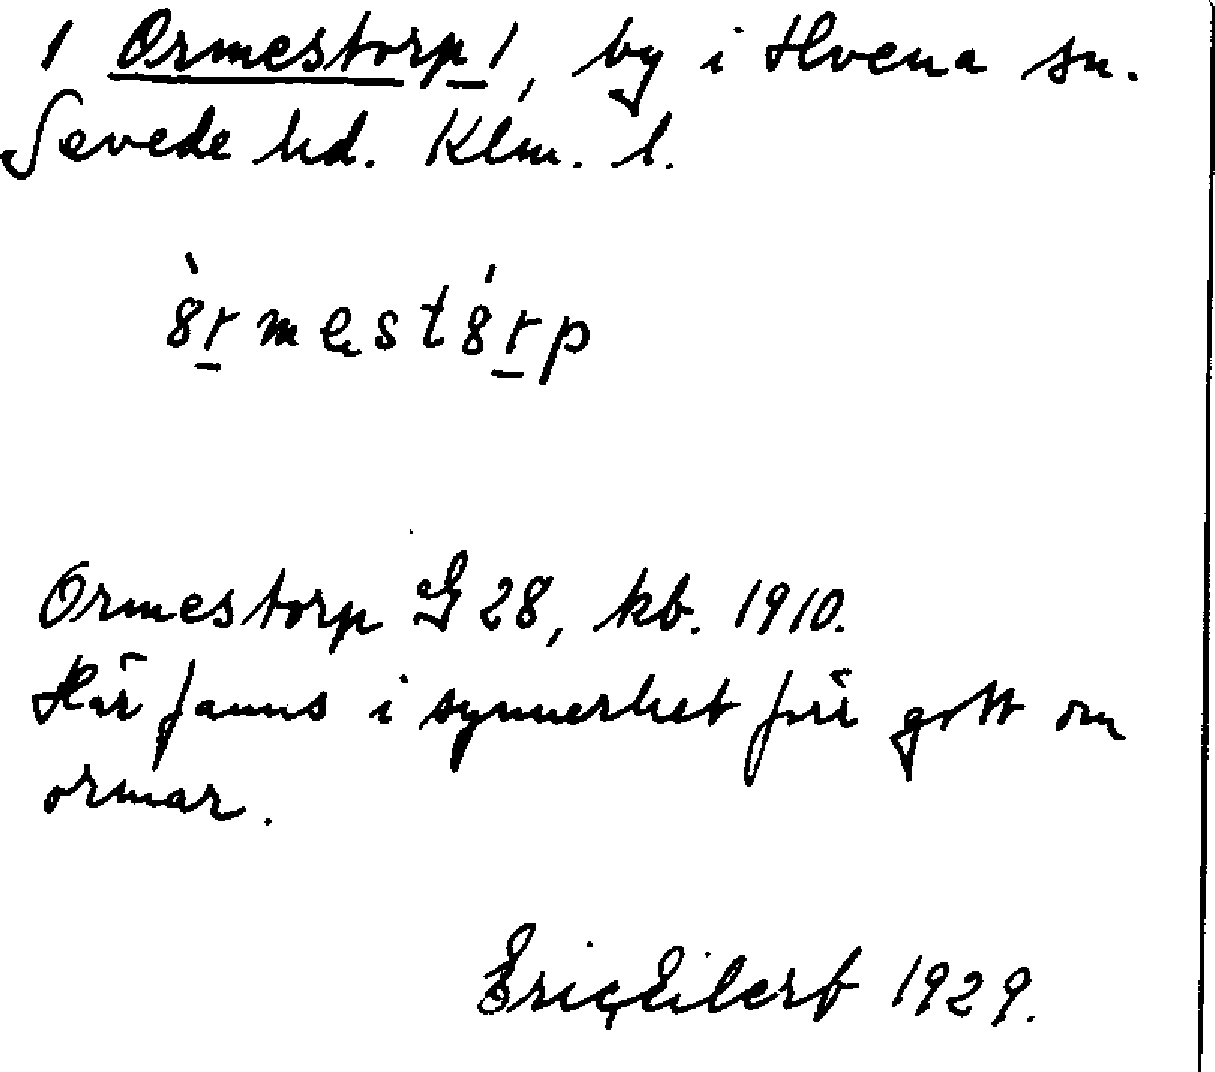 1 Ormestorp 1, by i Hvena sn.
Sevede hd. Klm. l.
8̀rmest8́rp
Ormestorp G 28, kb. 1910.
Här fanns i synnerhet förr gott om
ormar.
Eric Eilert 1929.